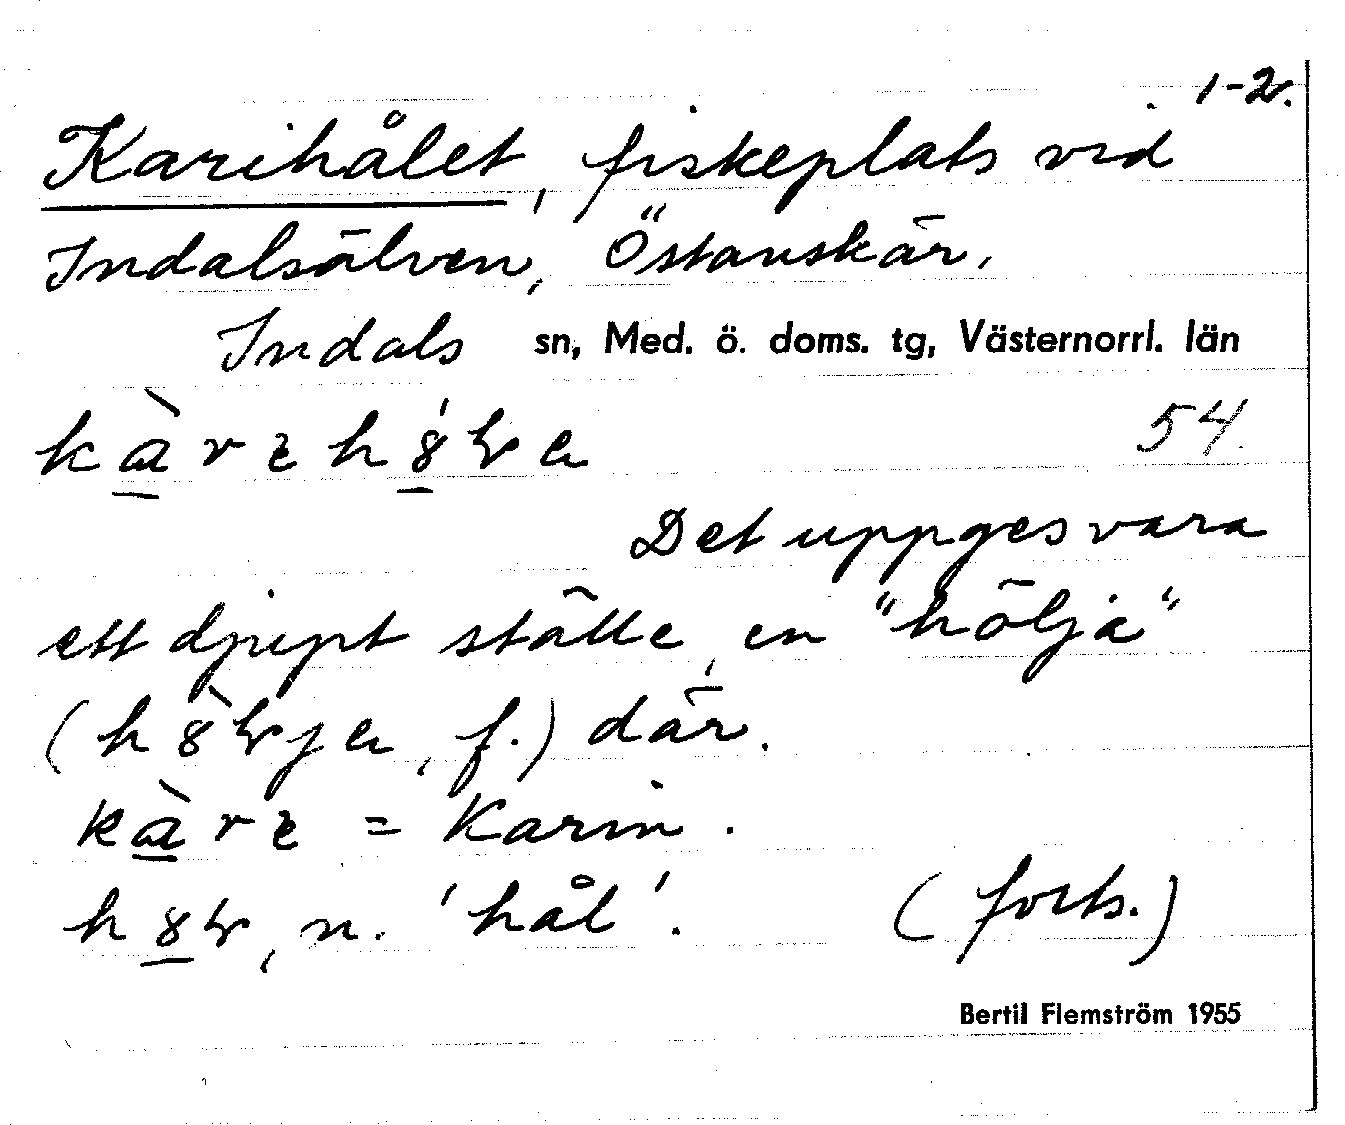 1-2.
Karihålet, fiskeplats vid
Indalsälven, Östanskär,
Indals sn, Med. ö. doms. tg, Västernorrl. län
54
Det uppges vara
ett djupt ställe, en "hölja"
( , f.) där.
= Karin.
, n. 'hål'. (forts.)
Bertil Flemström 1955